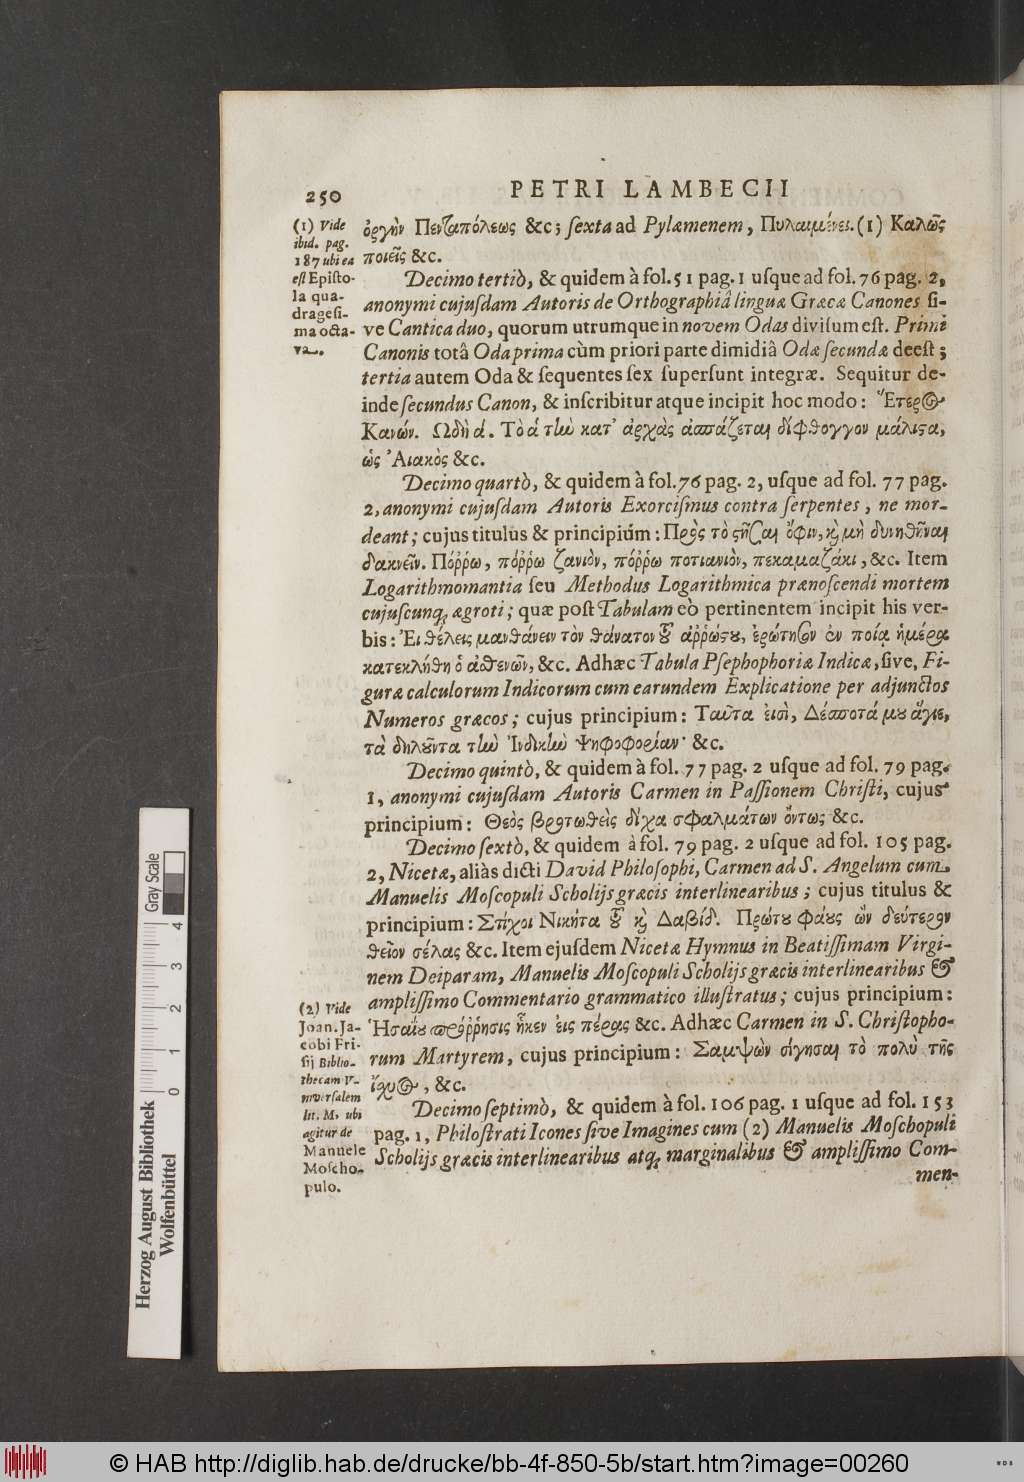 250 PETRI LAMBECII
(1) Vide
ibid. pag.
187 ubi ea
est Episto-
la qua-
dragesi-
ma octa-
va.
ὀργὴν Πενταπόλεως &c; sexta ad Pylæmenem, Πυλαιμένει. (1) Καλῶς
ποιεῖς &c.
Decimo tertiò, & quidem à fol. 51 pag. 1 usque ad fol. 76 pag. 2,
anonymi cujusdam Autoris de Orthographiâ linguæ Græcæ Canones si-
ve Cantica duo, quorum utrumque in novem Odas divisum est. Primi
Canonis totâ Oda prima cùm priori parte dimidiâ Odæ secundæ deest;
tertia autem Oda & sequentes sex supersunt integræ. Sequitur de-
inde secundus Canon, & inscribitur atque incipit hoc modo: Ἕτερος
Κανών. Ωδὴ ά. Τὸ ά τὴν κατ' ἀρχὰς ἀσπάζεται δίφθογγον μάλιστα,
ὡς Ἀιακὸς &c.
Decimo quartò, & quidem à fol. 76 pag. 2, usque ad fol. 77 pag.
2, anonymi cujusdam Autoris Exorcismus contra serpentes, ne mor-
deant; cujus titulus & principium: Πρὸς τὸ στῆσαι ὄφιν, καὶ μὴ δυνηθῆναι
δακνεῖν. Πόῤῥω, πόῤῥω ζανιὸν, πόῤῥω ποτιανιὸν, πεκαμαζάκι, &c. Item
Logarithmomantia seu Methodus Logarithmica prænoscendi mortem
cujuscunq; ægroti; quæ post Tabulam eò pertinentem incipit his ver-
bis: Ἐι θέλεις μανθάνειν τὸν θάνατον τοῦ ἀῤῥώστου, ἐρώτησον ἐν ποία ἡμέρα
κατεκλήθη ὁ ἀσθενῶν, &c. Adhæc Tabula Psephophoriæ Indicæ, sive, Fi-
guræ calculorum Indicorum cum earundem Explicatione per adjunctos
Numeros græcos; cujus principium: Ταῦτα ἐισὶ, Δέσποτά μου ἅγιε,
τὰ δηλοῦντα τὴν Ἰνδικὴν Ψηφοφορίαν· &c.
Decimo quintò, & quidem à fol. 77 pag. 2 usque ad fol. 79 pag.
1, anonymi cujusdam Autoris Carmen in Passionem Christi, cujus
principium: Θεὸς βροτωθεὶς δίχα σφαλμάτων ὄντως &c.
Decimo sextò, & quidem à fol. 79 pag. 2 usque ad fol. 105 pag.
2, Nicetæ, aliàs dicti David Philosophi, Carmen ad S. Angelum cum
Manuelis Moscopuli Scholijs græcis interlinearibus; cujus titulus &
principium: Στίχοι Νικήτα τοῦ καὶ Δαβίδ. Πρώτου φάους ὢν δεύτερον
θεῖον σέλας &c. Item ejusdem Nicetæ Hymnus in Beatissimam Virgi-
nem Deiparam, Manuelis Moscopuli Scholijs græcis interlinearibus &
amplissimo Commentario grammatico illustratus; cujus principium:
Ἡσαΐου πρόῤῥησις ἧκεν ἐις πέρας &c. Adhæc Carmen in S. Christopho-
rum Martyrem, cujus principium: Σαμψὼν σίγησαι τὸ πολὺ τῆς
ἰχυος, &c.
Decimo septimò, & quidem à fol. 106 pag. 1 usque ad fol. 153
pag. 1, Philostrati Icones sive Imagines cum (2) Manuelis Moschopuli
Scholijs græcis interlinearibus atq; marginalibus & amplissimo Com-
men-
(2) Vide
Joan. Ja-
cobi Fri-
sij Biblio-
thecam V-
niversalem
lit. M, ubi
agitur de
Manuele
Moscho-
pulo.
Herzog August Bibliothek
Wolfenbüttel
0 1 2 3 4
Gray Scale
© HAB http://diglib.hab.de/drucke/bb-4f-850-5b/start.htm?image=00260